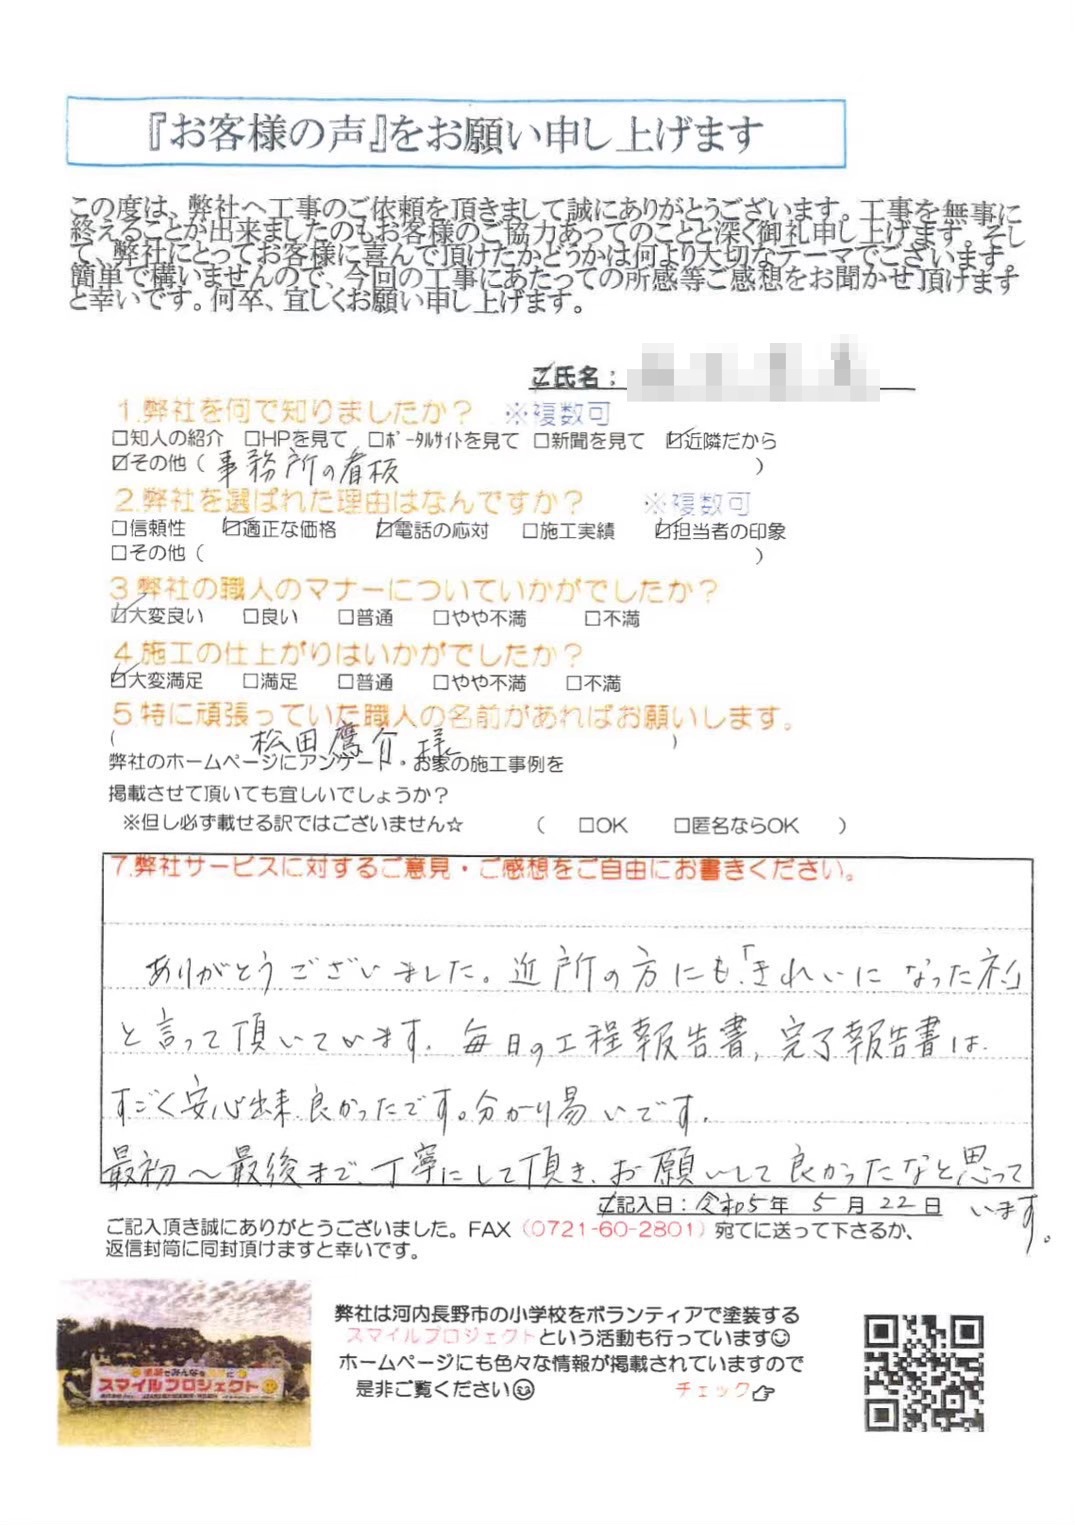 『お客様の声』をお願い申し上げます
この度は、弊社へ工事のご依頼を頂きまして誠にありがとうございます。工事を無事に
終えることが出来ましたのもお客様のご協力あってのことと深く御礼申し上げます。そし
て、弊社にとってお客様に喜んで頂けたかどうかは何より大切なテーマでございます。
簡単で構いませんので、今回の工事にあたっての所感等ご感想をお聞かせ頂けます
と幸いです。何卒、宜しくお願い申し上げます。
ご氏名：
1.弊社を何で知りましたか？ ※複数可
□知人の紹介 □HPを見て □ﾎﾟｰﾀﾙｻｲﾄを見て □新聞を見て ☑近隣だから
☑その他（ 事務所の看板 ）
2.弊社を選ばれた理由はなんですか？ ※複数可
□信頼性 ☑適正な価格 ☑電話の応対 □施工実績 ☑担当者の印象
□その他（ ）
3.弊社の職人のマナーについていかがでしたか？
☑大変良い □良い □普通 □やや不満 □不満
4.施工の仕上がりはいかがでしたか？
☑大変満足 □満足 □普通 □やや不満 □不満
5.特に頑張っていた職人の名前があればお願いします。
（ 松田鷹介 様 ）
弊社のホームページにアンケート・お家の施工事例を
掲載させて頂いても宜しいでしょうか？
※但し必ず載せる訳ではございません☆ （ □OK □匿名ならOK ）
7.弊社サービスに対するご意見・ご感想をご自由にお書きください。
ありがとうございました。近所の方にも「きれいになったネ」
と言って頂いています。毎日の工程報告書、完了報告書は、
すごく安心出来、良かったです。分かり易いです。
最初～最後まで、丁寧にして頂き、お願いして良かったなと思って
います。
ご記入日：令和5年 5月 22日
ご記入頂き誠にありがとうございました。FAX（0721-60-2801）宛てに送って下さるか、
返信封筒に同封頂けますと幸いです。
スマイルプロジェクト
弊社は河内長野市の小学校をボランティアで塗装する
スマイルプロジェクトという活動も行っています☺
ホームページにも色々な情報が掲載されていますので
是非ご覧ください☺ チェック☞